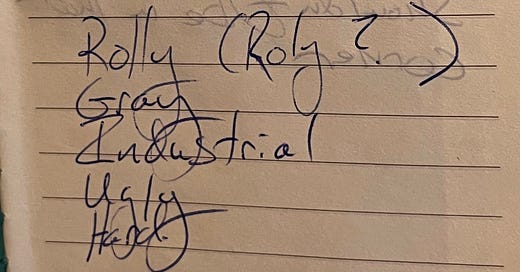 Rolly (Roly?)
Gray
Industrial
Ugly
Hard